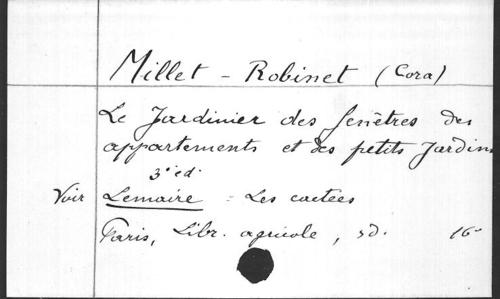 Millet - Robinet (Cora)
Le Jardinier des fenêtres des
appartements et des petits Jardins
3e éd.
Voir Lemaire : Les cactées
Paris, Libr. agricole, sd. 16°